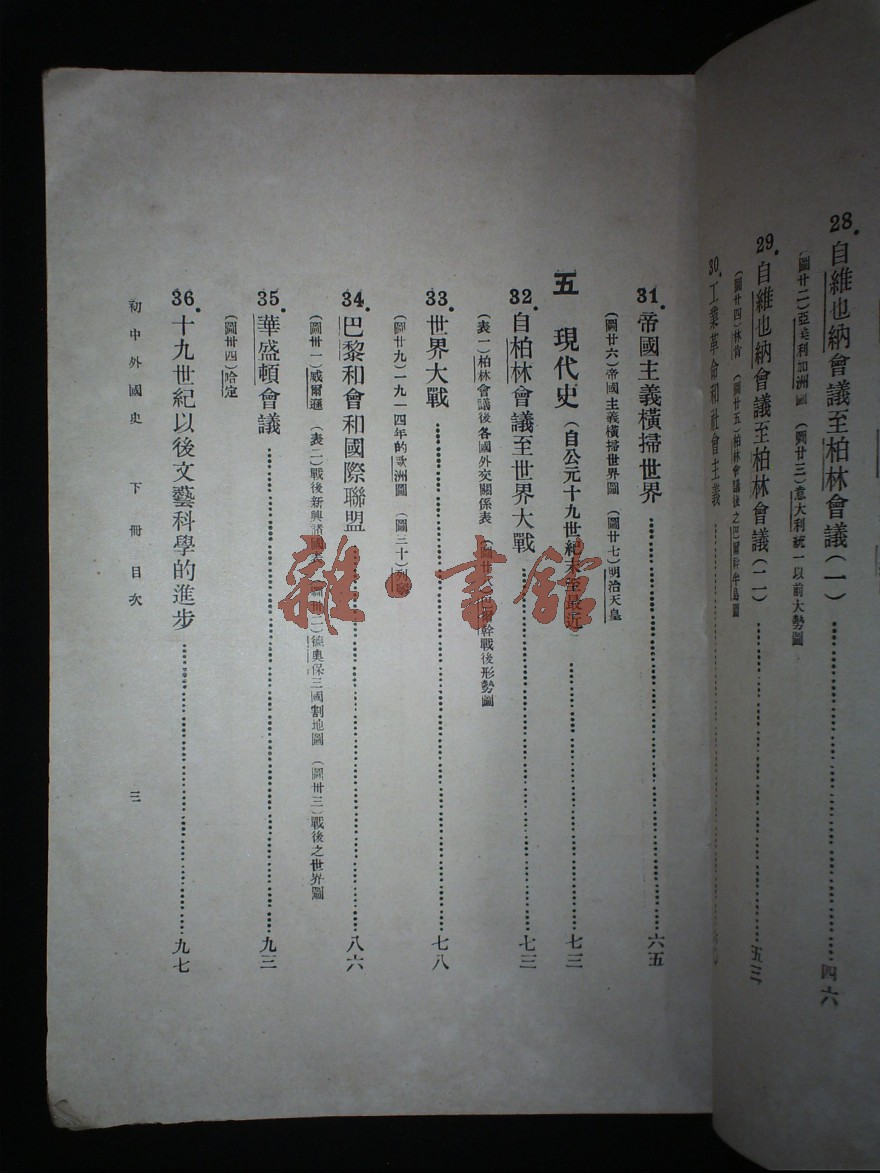 28. 自維也納會議至柏林會議(一)……四六
(圖廿二)亞美利加洲圖 (圖廿三)意大利統一以前大勢圖
29. 自維也納會議至柏林會議(二)……五三
(圖廿四)林肯 (圖廿五)柏林會議後之巴爾幹半島圖
30. 工業革命和社會主義……九
31. 帝國主義橫掃世界……六五
(圖廿六)帝國主義橫掃世界圖 (圖廿七)明治天皇
五 現代史(自公元十九世紀末至最近)……七三
32. 自柏林會議至世界大戰……七三
(表一)柏林會議後各國外交關係表 (圖廿 幹戰後形勢圖
33. 世界大戰……七八
(圖廿九)一九一四年的歐洲圖 (圖三十)列寧
34. 巴黎和會和國際聯盟……八六
(圖卅一)威爾遜 (表二)戰後新興諸國表 (圖卅二)德奧保三國割地圖 (圖卅三)戰後之世界圖
35. 華盛頓會議……九三
(圖卅四)哈定
36. 十九世紀以後文藝科學的進步……九七
初中外國史 下冊 目次 三
雜·書館